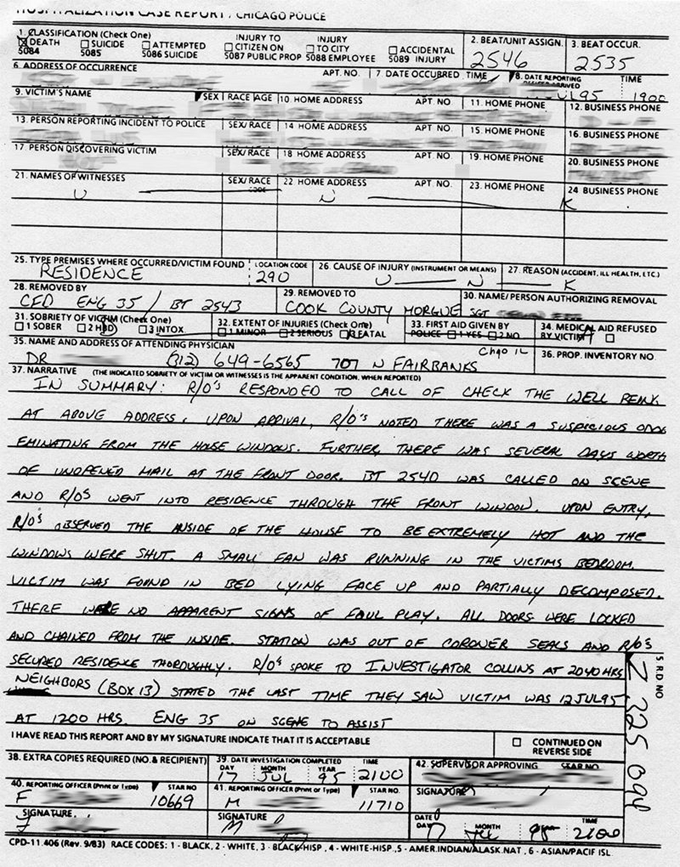 HOSPITALIZATION CASE REPORT / CHICAGO POLICE
1. CLASSIFICATION (Check One)
DEATH SUICIDE ATTEMPTED INJURY TO CITIZEN ON INJURY TO CITY ACCIDENTAL
5084 5085 5086 SUICIDE 5087 PUBLIC PROP 5088 EMPLOYEE 5089 INJURY
2. BEAT/UNIT ASSIGN. 3. BEAT OCCUR.
2546 2535
6. ADDRESS OF OCCURRENCE APT. NO. 7 DATE OCCURRED TIME 8. DATE REPORTING TIME
UL95 1900
9. VICTIM'S NAME SEX RACE AGE 10. HOME ADDRESS APT. NO 11. HOME PHONE 12. BUSINESS PHONE
13. PERSON REPORTING INCIDENT TO POLICE SEX/RACE 14 HOME ADDRESS APT. NO 15. HOME PHONE 16. BUSINESS PHONE
17. PERSON DISCOVERING VICTIM SEX/RACE 18 HOME ADDRESS APT. NO. 19. HOME PHONE 20. BUSINESS PHONE
21. NAMES OF WITNESSES SEX/RACE 22. HOME ADDRESS APT. NO. 23. HOME PHONE 24 BUSINESS PHONE
U N K
25. TYPE PREMISES WHERE OCCURRED/VICTIM FOUND LOCATION CODE 26. CAUSE OF INJURY (INSTRUMENT OR MEANS) 27. REASON (ACCIDENT, ILL HEALTH, ETC.)
RESIDENCE 290 U N K
28. REMOVED BY 29. REMOVED TO 30. NAME/PERSON AUTHORIZING REMOVAL
CFD ENG 35 / BT 2543 COOK COUNTY MORGUE SGT
31. SOBRIETY OF VICTIM (Check One) 32. EXTENT OF INJURIES (Check One) 33. FIRST AID GIVEN BY 34. MEDICAL AID REFUSED
1 SOBER 2 HBD 3 INTOX 1 MINOR 2 SERIOUS FATAL POLICE 1 YES 2 NO BY VICTIM
35. NAME AND ADDRESS OF ATTENDING PHYSICIAN 36. PROP. INVENTORY NO.
DR (312) 649-6565 707 N FAIRBANKS Chgo IL
37. NARRATIVE (THE INDICATED SOBRIETY OF VICTIM OR WITNESSES IS THE APPARENT CONDITION, WHEN REPORTED)
IN SUMMARY: R/O'S RESPONDED TO CALL OF CHECK THE WELL BEING
AT ABOVE ADDRESS. UPON ARRIVAL, R/O'S NOTED THERE WAS A SUSPICIOUS ODOR
EMINATING FROM THE HOUSE WINDOWS. FURTHER, THERE WAS SEVERAL DAYS WORTH
OF UNOPENED MAIL AT THE FRONT DOOR. BT 2540 WAS CALLED ON SCENE
AND R/O'S WENT INTO RESIDENCE THROUGH THE FRONT WINDOW. UPON ENTRY,
R/O'S OBSERVED THE INSIDE OF THE HOUSE TO BE EXTREMELY HOT AND THE
WINDOWS WERE SHUT. A SMALL FAN WAS RUNNING IN THE VICTIMS BEDROOM.
VICTIM WAS FOUND IN BED LYING FACE UP AND PARTIALLY DECOMPOSED.
THERE WERE NO APPARENT SIGNS OF FOUL PLAY. ALL DOORS WERE LOCKED
AND CHAINED FROM THE INSIDE. STATION WAS OUT OF CORONER SEALS AND R/O'S
SECURED RESIDENCE THOROUGHLY. R/O'S SPOKE TO INVESTIGATOR COLLINS AT 2040 HRS
NEIGHBORS (BOX 13) STATED THE LAST TIME THEY SAW VICTIM WAS 12JUL95
AT 1200 HRS. ENG 35 ON SCENE TO ASSIST
S R.D NO
Z 325
I HAVE READ THIS REPORT AND BY MY SIGNATURE INDICATE THAT IT IS ACCEPTABLE CONTINUED ON REVERSE SIDE
38. EXTRA COPIES REQUIRED (NO. & RECIPIENT) 39. DATE INVESTIGATION COMPLETED TIME 42. SUPERVISOR APPROVING STAR NO.
DAY MONTH YEAR
17 JUL 95 2100
40. REPORTING OFFICER (Print or Type) STAR NO 41. REPORTING OFFICER (Print or Type) STAR NO. SIGNATURE
F 10669 M 11710
SIGNATURE SIGNATURE DATE DAY MONTH YEAR TIME
M 2100
CPD-11.406 (Rev. 9/83) RACE CODES: 1 - BLACK, 2 - WHITE, 3 - BLACK-HISP., 4 - WHITE-HISP., 5 - AMER.INDIAN/ALASK.NAT., 6 - ASIAN/PACIF ISL